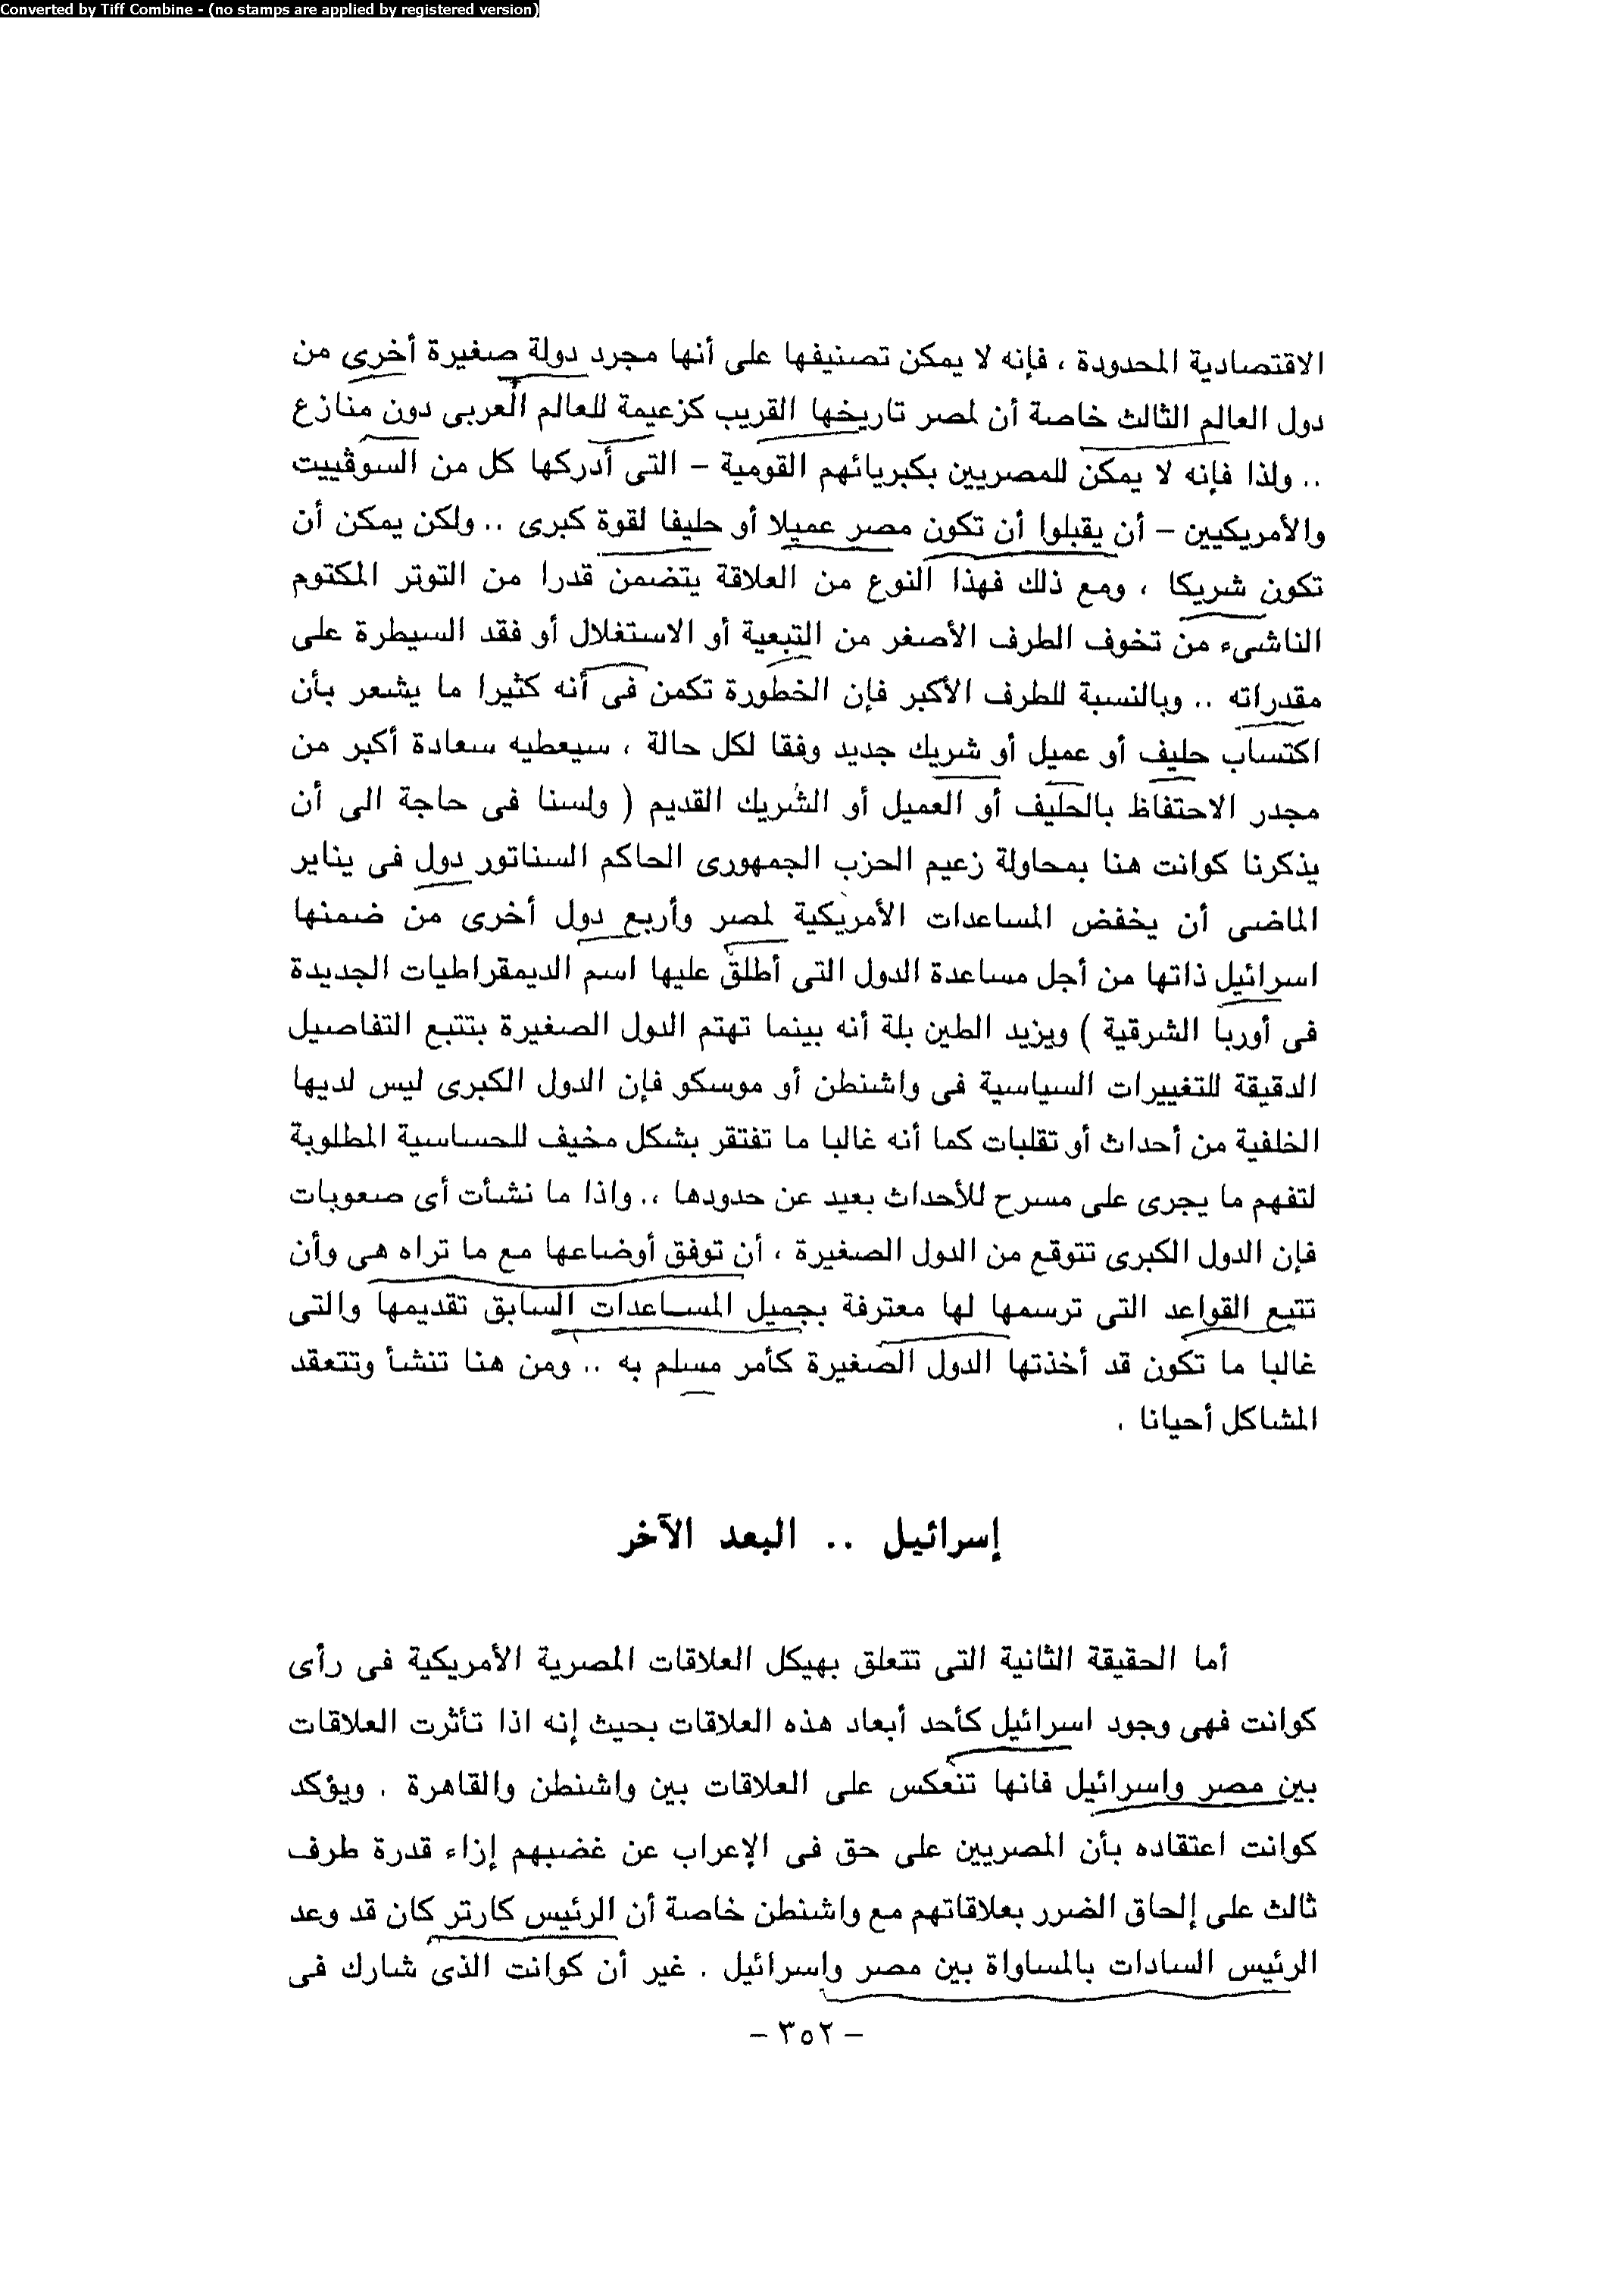 Converted by Tiff Combine - (no stamps are applied by registered version)
الاقتصادية المحدودة ، فإنه لا يمكن تصنيفها على أنها مجرد دولة صغيرة أخرى من
دول العالم الثالث خاصة أن لمصر تاريخها القريب كزعيمة للعالم العربى دون منازع
.. ولذا فإنه لا يمكن للمصريين بكبريائهم القومية – التى أدركها كل من السوڤييت
والأمريكيين – أن يقبلوا أن تكون مصر عميلا أو حليفا لقوة كبرى .. ولكن يمكن أن
تكون شريكا ، ومع ذلك فهذا النوع من العلاقة يتضمن قدرا من التوتر المكتوم
الناشىء من تخوف الطرف الأصغر من التبعية أو الاستغلال أو فقد السيطرة على
مقدراته .. وبالنسبة للطرف الأكبر فإن الخطورة تكمن فى أنه كثيرا ما يشعر بأن
اكتساب حليف أو عميل أو شريك جديد وفقا لكل حالة ، سيعطيه سعادة أكبر من
مجدر الاحتفاظ بالحليف أو العميل أو الشريك القديم ( ولسنا فى حاجة الى أن
يذكرنا كوانت هنا بمحاولة زعيم الحزب الجمهورى الحاكم السناتور دول فى يناير
الماضى أن يخفض المساعدات الأمريكية لمصر وأربع دول أخرى من ضمنها
اسرائيل ذاتها من أجل مساعدة الدول التى أطلق عليها اسم الديمقراطيات الجديدة
فى أوربا الشرقية ) ويزيد الطين بلة أنه بينما تهتم الدول الصغيرة بتتبع التفاصيل
الدقيقة للتغييرات السياسية فى واشنطن أو موسكو فإن الدول الكبرى ليس لديها
الخلفية من أحداث أو تقلبات كما أنه غالبا ما تفتقر بشكل مخيف للحساسية المطلوبة
لتفهم ما يجرى على مسرح للأحداث بعيد عن حدودها .. واذا ما نشأت أى صعوبات
فإن الدول الكبرى تتوقع من الدول الصغيرة ، أن توفق أوضاعها مع ما تراه هى وأن
تتبع القواعد التى ترسمها لها معترفة بجميل المساعدات السابق تقديمها والتى
غالبا ما تكون قد أخذتها الدول الصغيرة كأمر مسلم به .. ومن هنا تنشأ وتتعقد
المشاكل أحيانا .
إسرائيل .. البعد الآخر
أما الحقيقة الثانية التى تتعلق بهيكل العلاقات المصرية الأمريكية فى رأى
كوانت فهى وجود اسرائيل كأحد أبعاد هذه العلاقات بحيث إنه اذا تأثرت العلاقات
بين مصر واسرائيل فانها تنعكس على العلاقات بين واشنطن والقاهرة . ويؤكد
كوانت اعتقاده بأن المصريين على حق فى الإعراب عن غضبهم إزاء قدرة طرف
ثالث على إلحاق الضرر بعلاقاتهم مع واشنطن خاصة أن الرئيس كارتر كان قد وعد
الرئيس السادات بالمساواة بين مصر واسرائيل . غير أن كوانت الذى شارك فى
– ٣٥٢ –